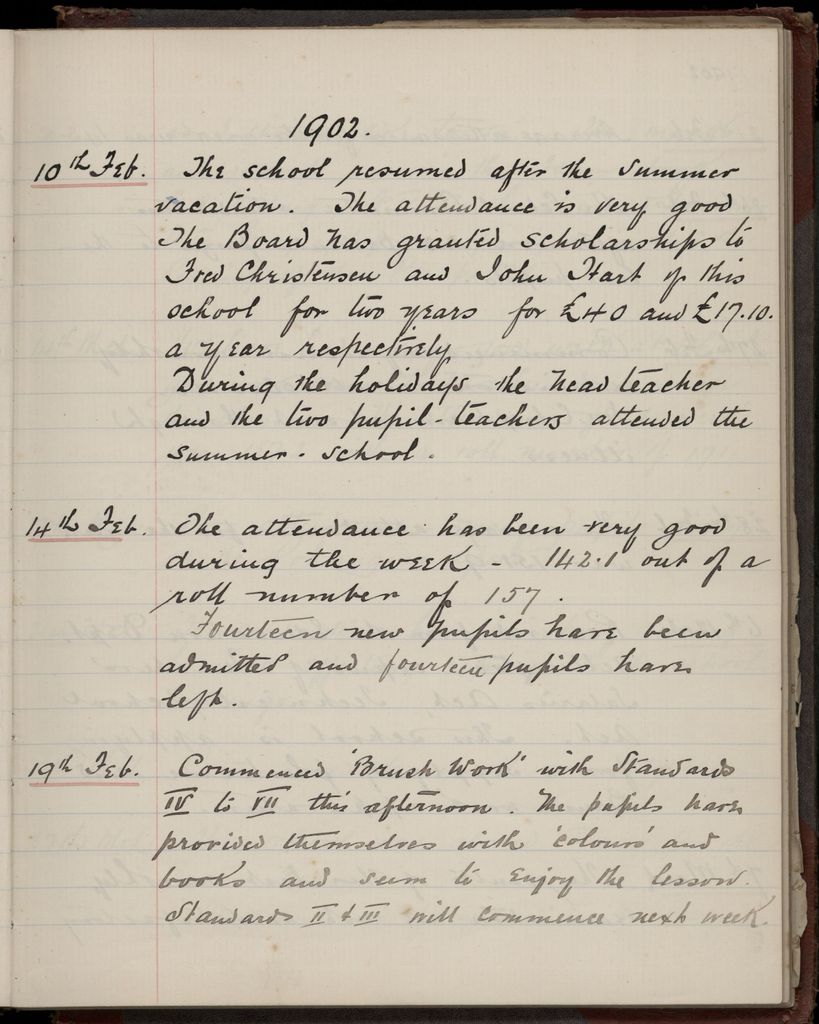 1902.
10th Feb. The school resumed after the summer
vacation. The attendance is very good
The Board has granted scholarships to
Fred Christensen and John Hart of this
school for two years for £40 and £17.10.
a year respectively
During the holidays the head teacher
and the two pupil-teachers attended the
summer-school.
14th Feb. The attendance has been very good
during the week - 142.1 out of a
roll number of 157.
Fourteen new pupils have been
admitted and fourteen pupils have
left.
19th Feb. Commenced 'Brush Work' with Standards
IV to VII this afternoon. The pupils have
provided themselves with 'colours' and
books and seem to enjoy the lesson.
Standards II & III will commence next week.